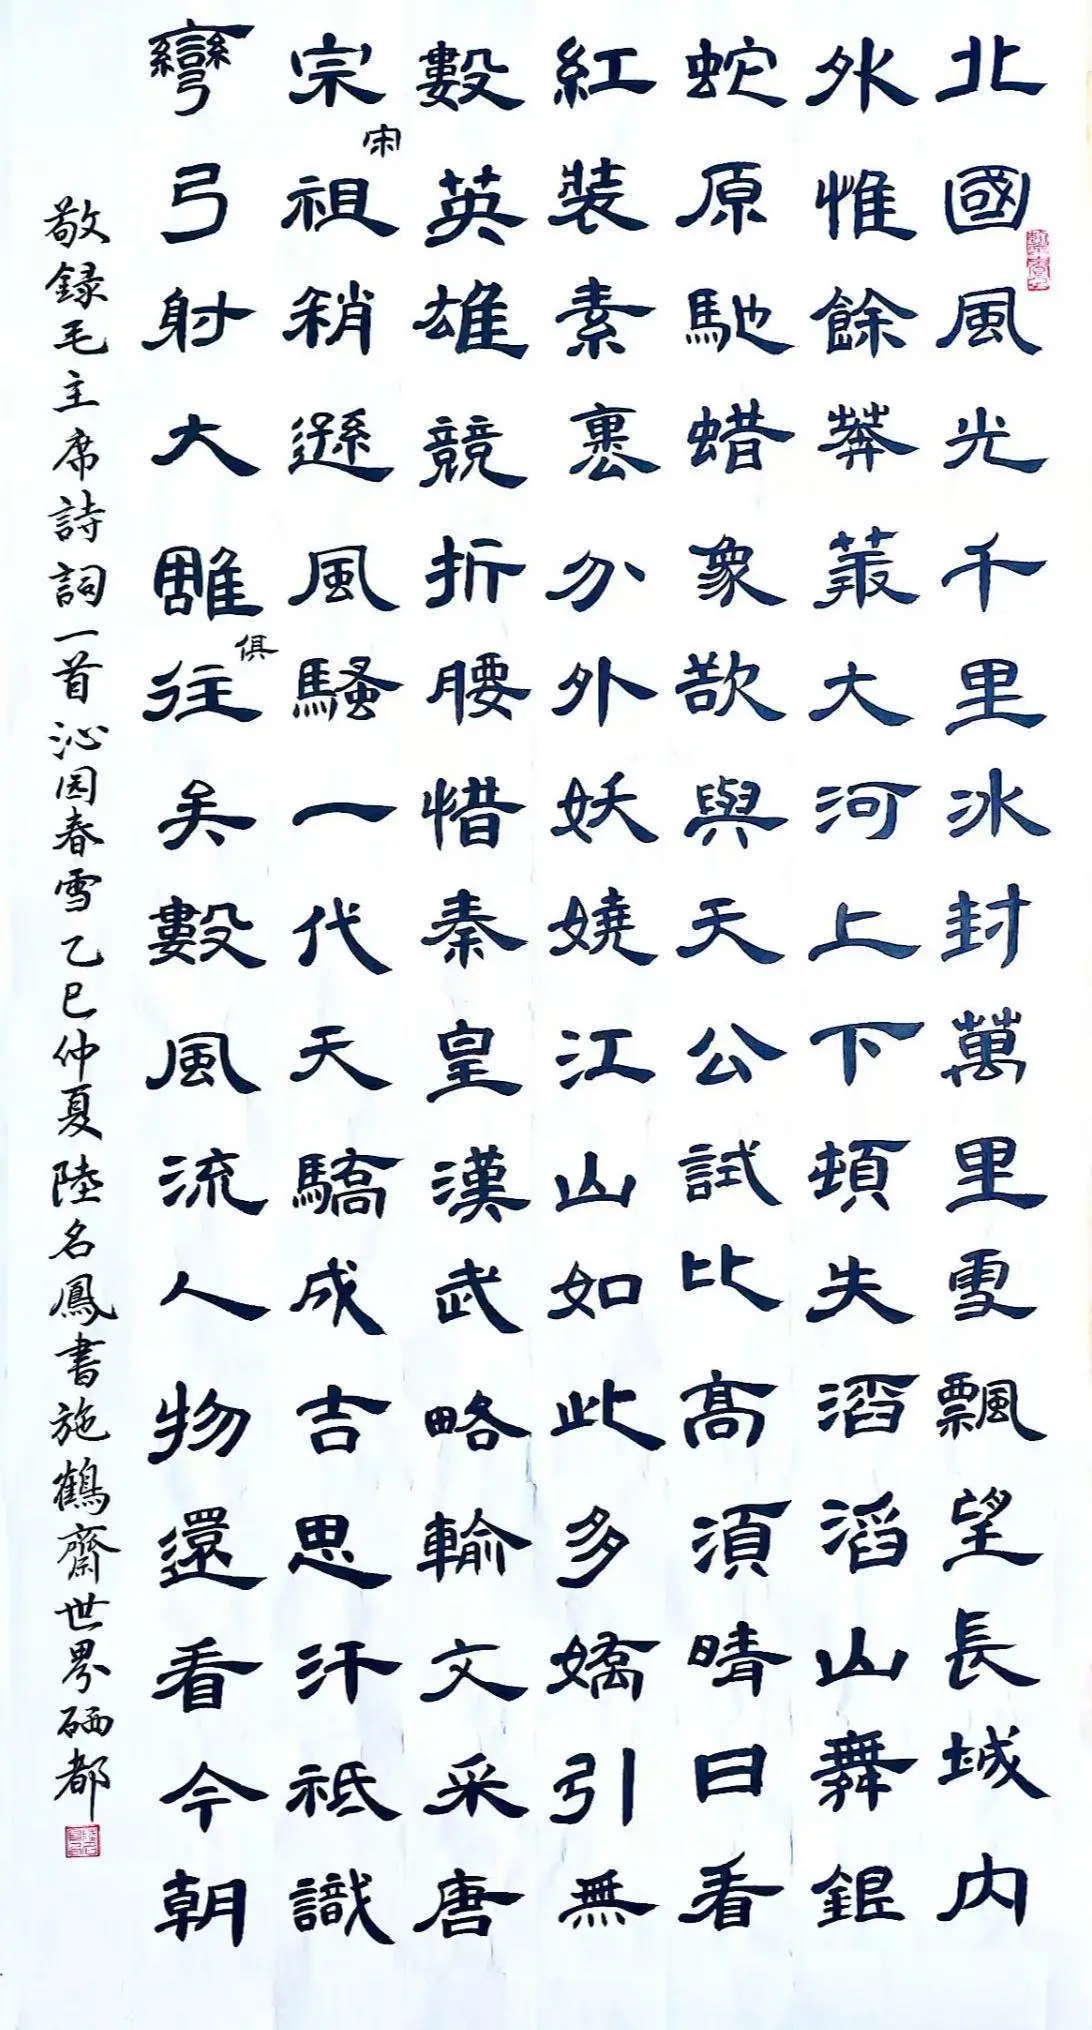 北國風光千里冰封萬里雪飄望長城内
外惟餘莽叢大河上下頓失滔滔山舞銀
蛇原馳蜡象欲與天公試比高須晴日看
紅裝素裹分外妖嬈江山如此多嬌引無
數英雄競折腰惜秦皇漢武略輸文采唐
宗宋祖稍遜風騷一代天驕成吉思汗祗識
彎弓射大雕俱往矣數風流人物還看今朝
敬録毛主席詩詞一首沁园春雪乙巳仲夏陸名鳳書施鶴齋世界硒都